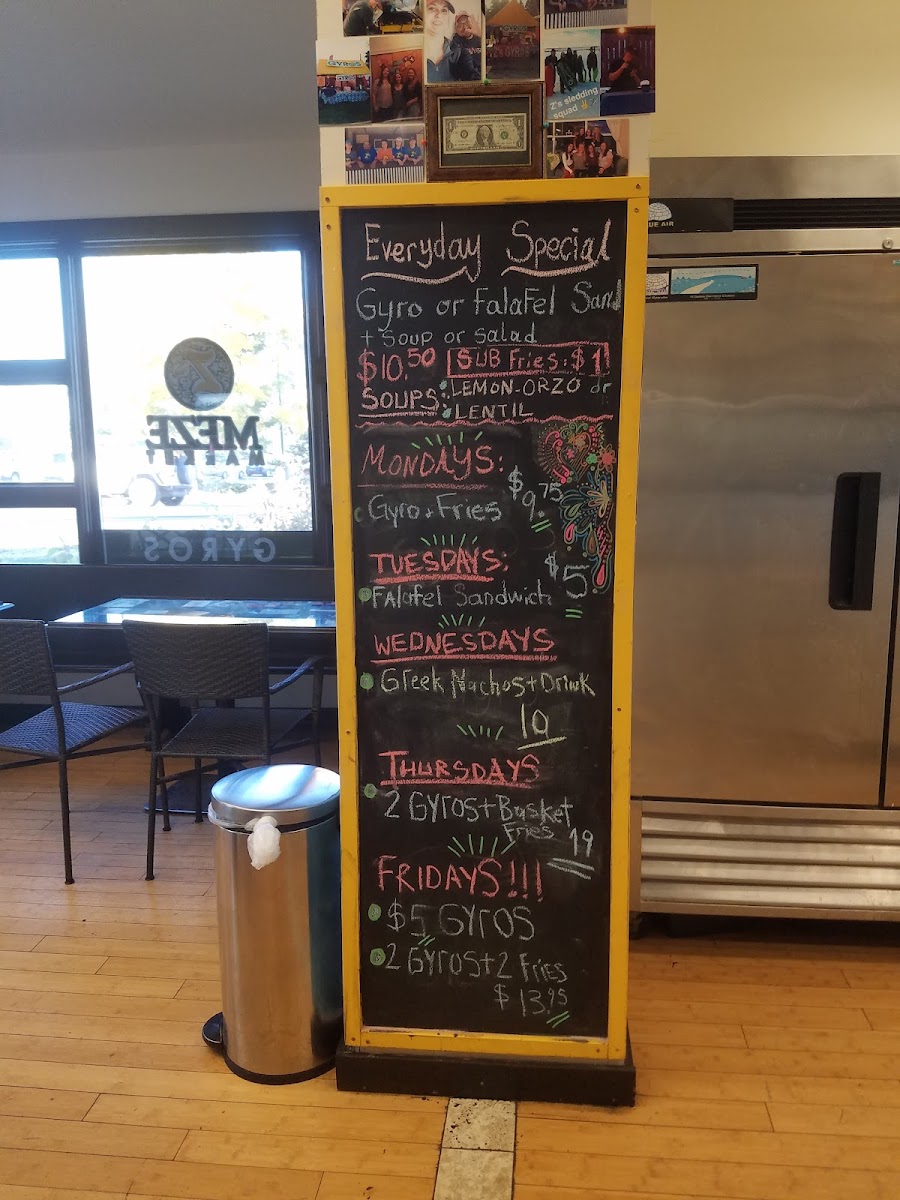 GYROS
GYROS
Z's sledding
squad
Everyday Special
Gyro or Falafel San
+ Soup or Salad
$10.50 SUB Fries: $1
SOUPS: LEMON-ORZO or
LENTIL
MONDAYS:
Gyro + Fries $9.75
TUESDAYS:
Falafel Sandwich $5
WEDNESDAYS
Greek Nachos + Drink
10
THURSDAYS
2 Gyros + Basket
Fries 19
FRIDAYS!!!
$5 GYROS
2 Gyros + 2 Fries
$13.95
MEZE
GYROS
UE AIR